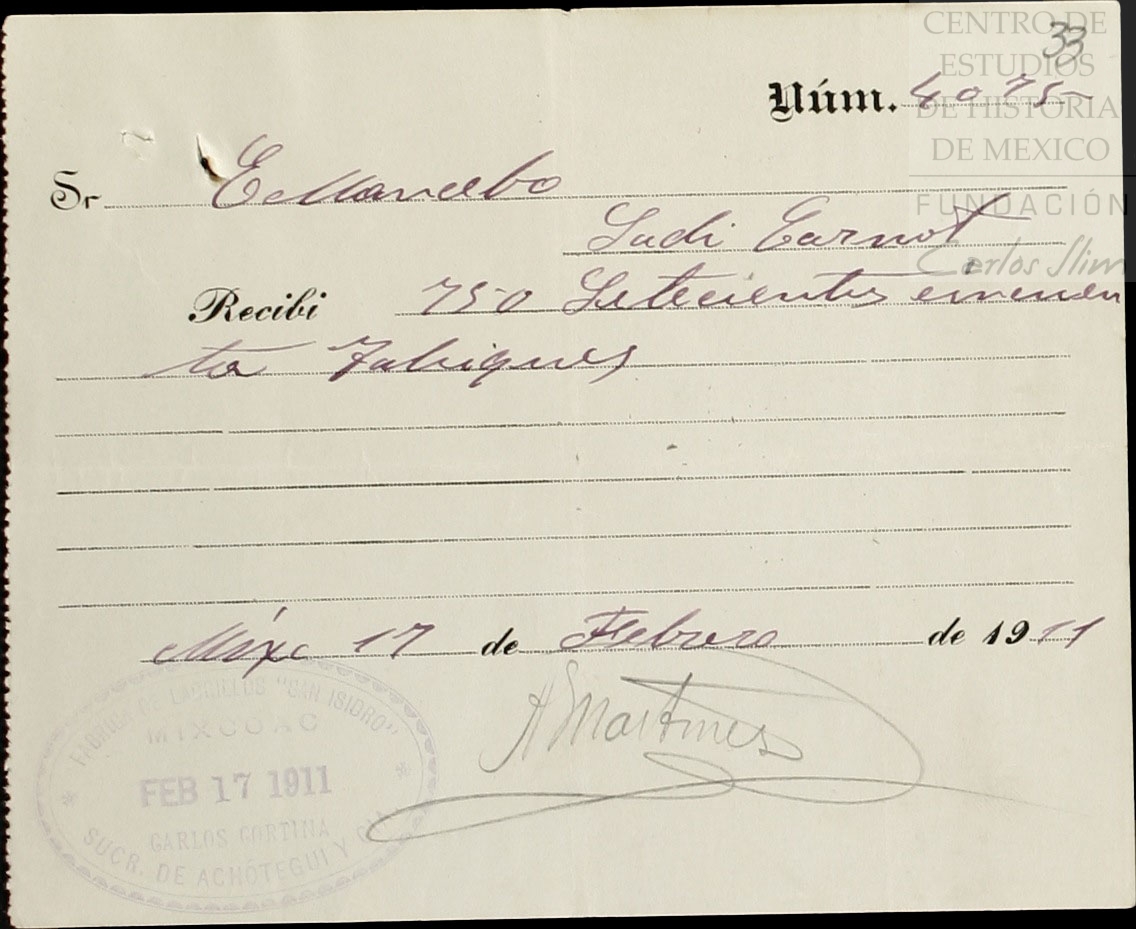 CENTRO DE
ESTUDIOS
DE HISTORIA
DE MEXICO
FUNDACIÓN
Carlos Slim
33
Núm. 4075
Sr E Mancebo
Sadi Carnot
Recibi 750 Setecientos cincuen
ta Tabiques
Mixc 17 de Febrero de 1911
A Martines
FABRICA DE LADRILLOS "SAN ISIDRO"
MIXCOAC
FEB 17 1911
CARLOS CORTINA
SUCR. DE ACHÓTEGUI Y